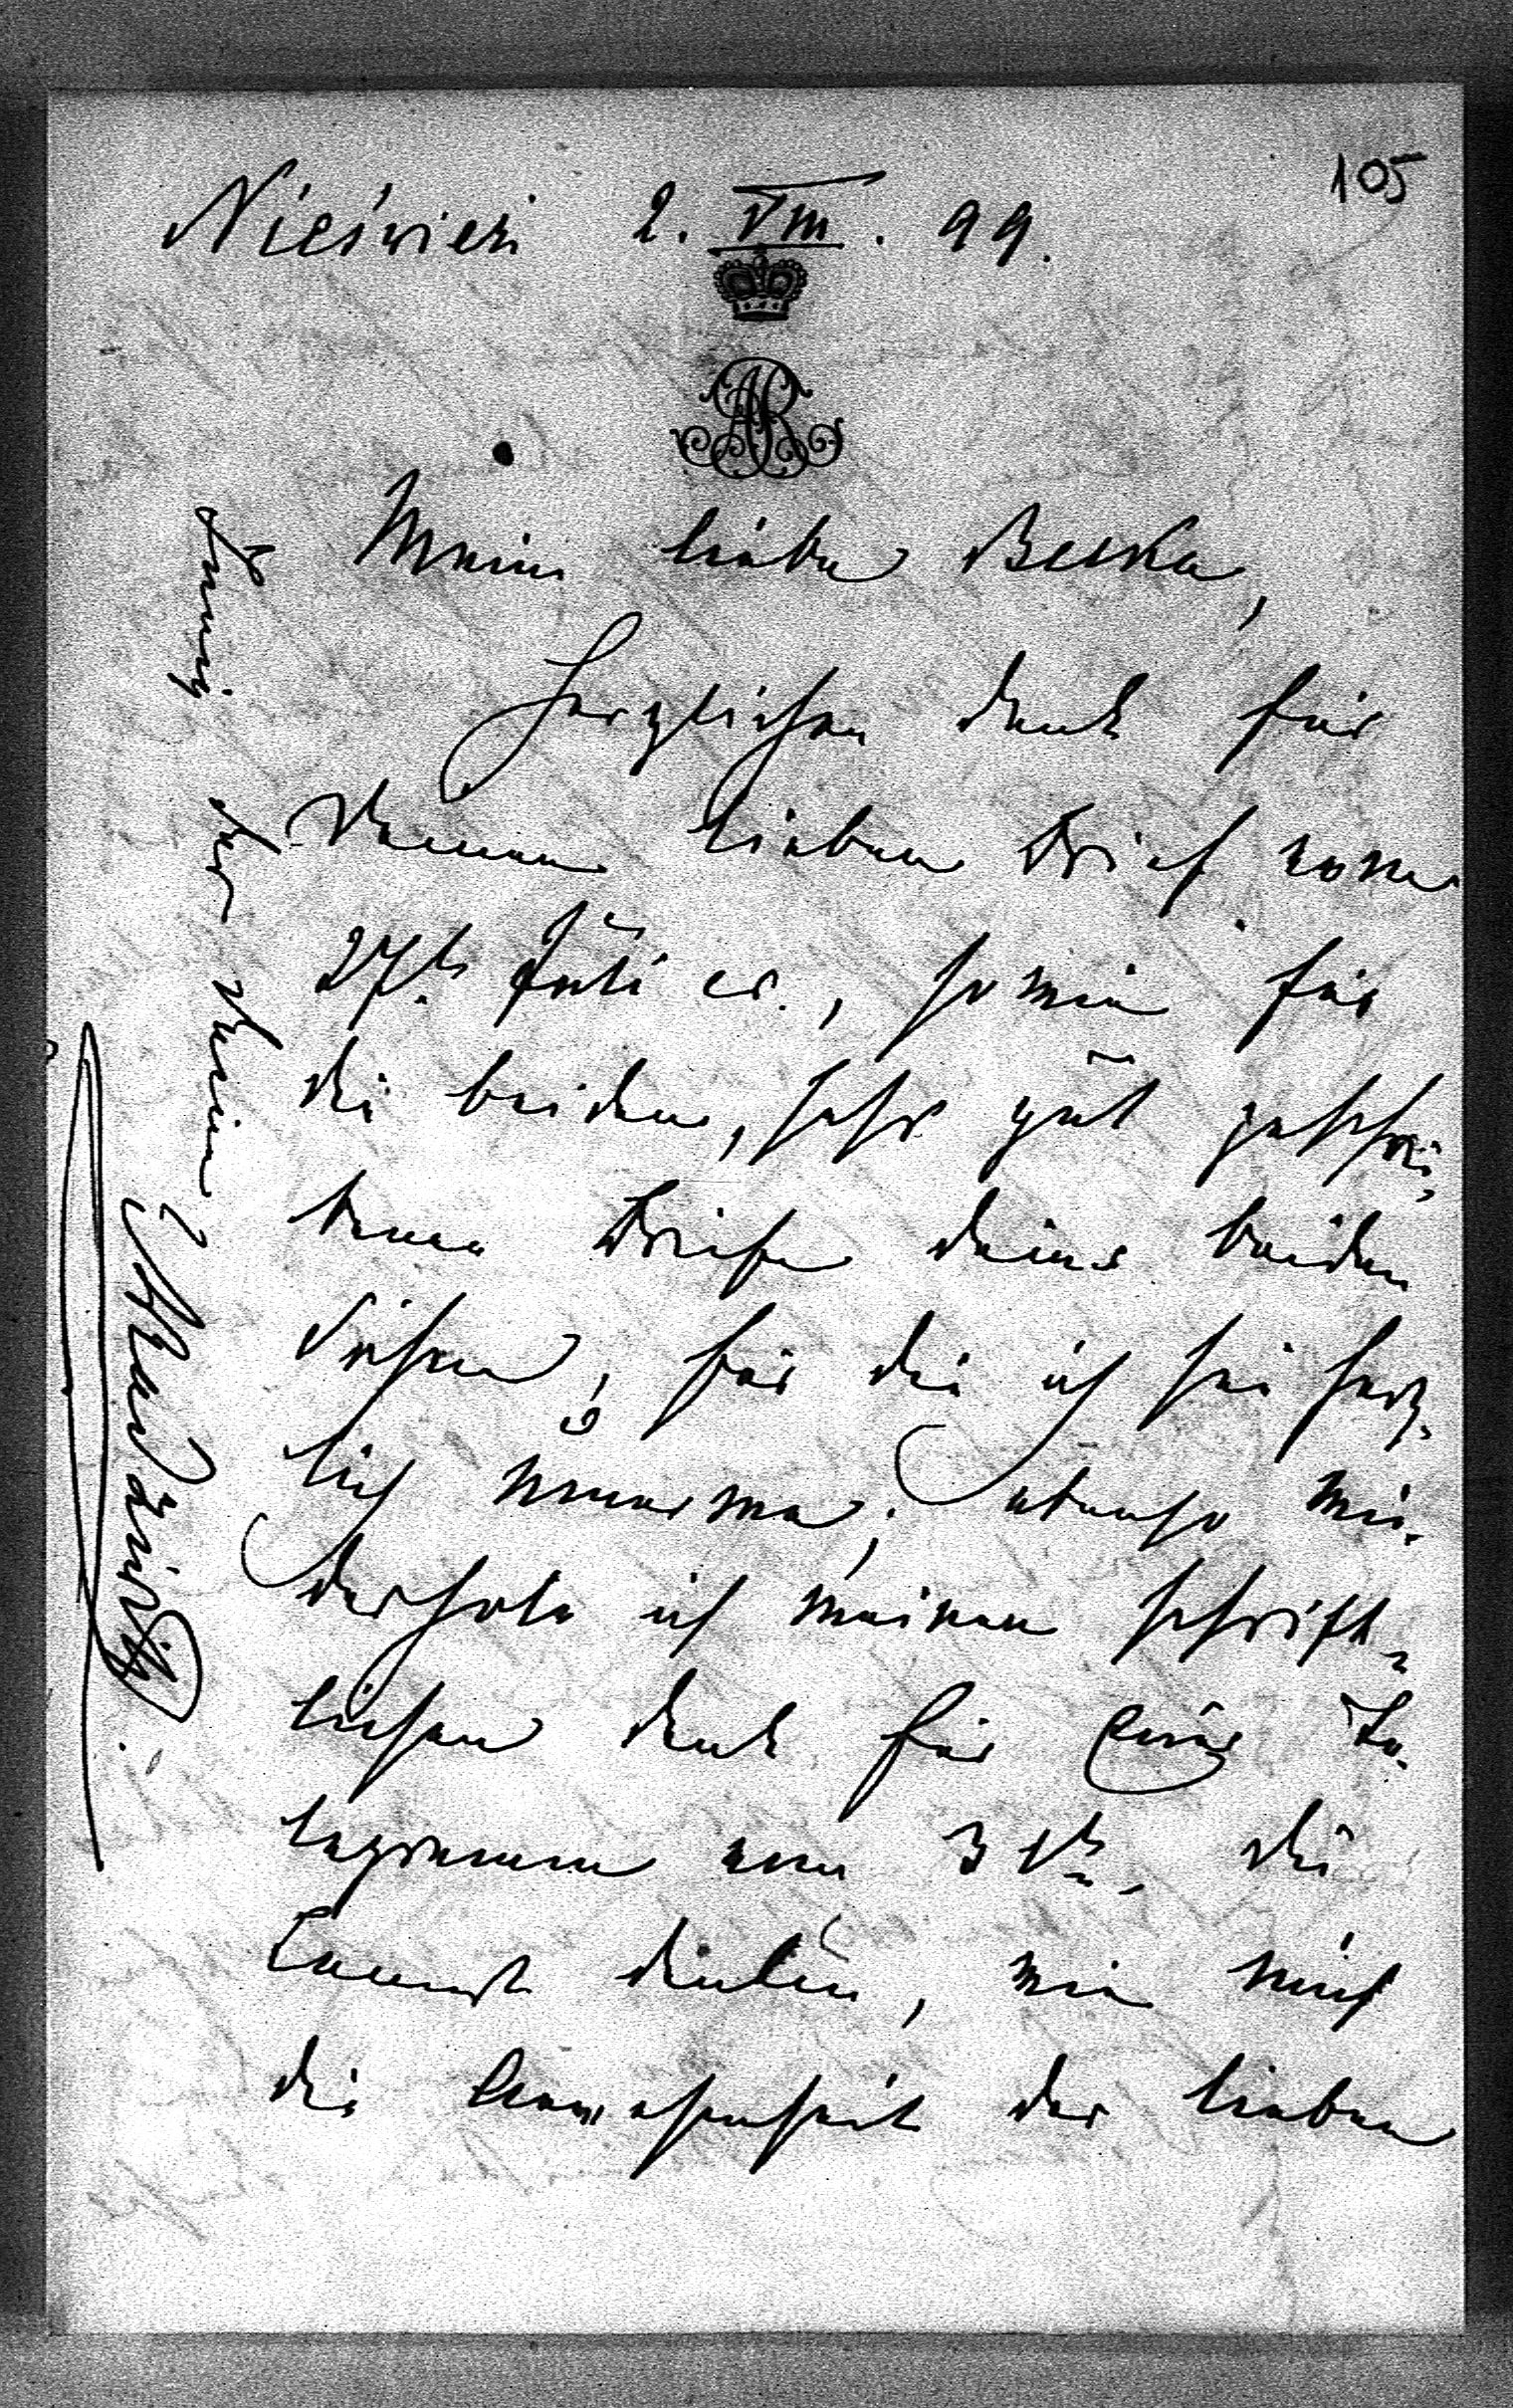 105
Nieśwież 2. VIII. 99.
AR
Meine liebe Beska,
Herzlichen Dank für
Deinen lieben Brief vom
27t. Juli cr., sowie für
die beiden, sehr gut geschrie-
benen Briefe deiner beiden
Söhne, für die ich sie herz-
lich umarme; ebenso wie-
derhole ich meinen schrift-
lichen Dank für Eure Te-
legramme vom 31t., die
kannst denken, wie mich
die Anwesenheit der lieben